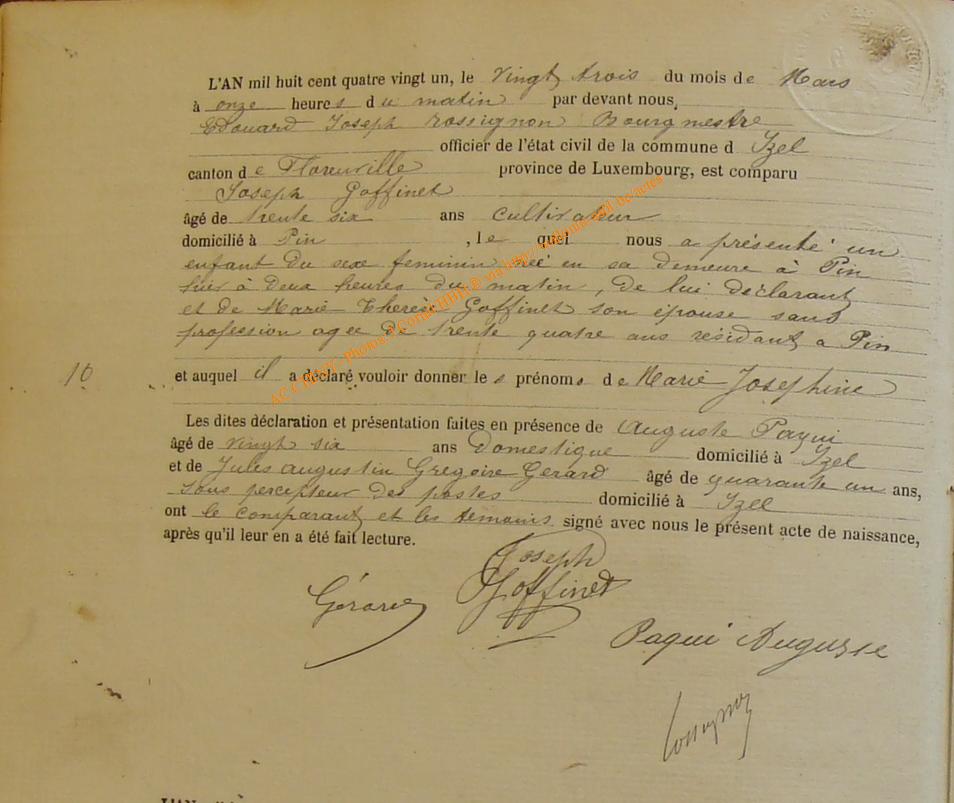 L'AN mil huit cent quatre vingt un, le vingt trois du mois de Mars
à onze heures du matin par devant nous,
Edouard Joseph Rossignon Bourgmestre
officier de l'état civil de la commune d Izel
canton de Florenville province de Luxembourg, est comparu
Joseph Goffinet
âgé de trente six ans cultivateur
domicilié à Pin , le quel nous a présenté un
enfant du sexe feminin né en sa demeure à Pin
hier à deux heures du matin, de lui déclarant
et de Marie Thérèse Goffinet son épouse sans
profession agee de trente quatre ans résidant a Pin
10 et auquel il a déclaré vouloir donner les prénoms de Marie Josephine
Les dites déclaration et présentation faites en présence de Auguste Paqui
âgé de vingt six ans Domestique domicilié à Izel
et de Jules Augustin Gregoire Gerard âgé de quarante un ans,
Sous percepteur des postes domicilié à Izel
ont le comparant et les témoins signé avec nous le présent acte de naissance,
après qu'il leur en a été fait lecture.
Joseph
Goffinet
Gérard
Paqui Auguste
Rossignon
L'AN